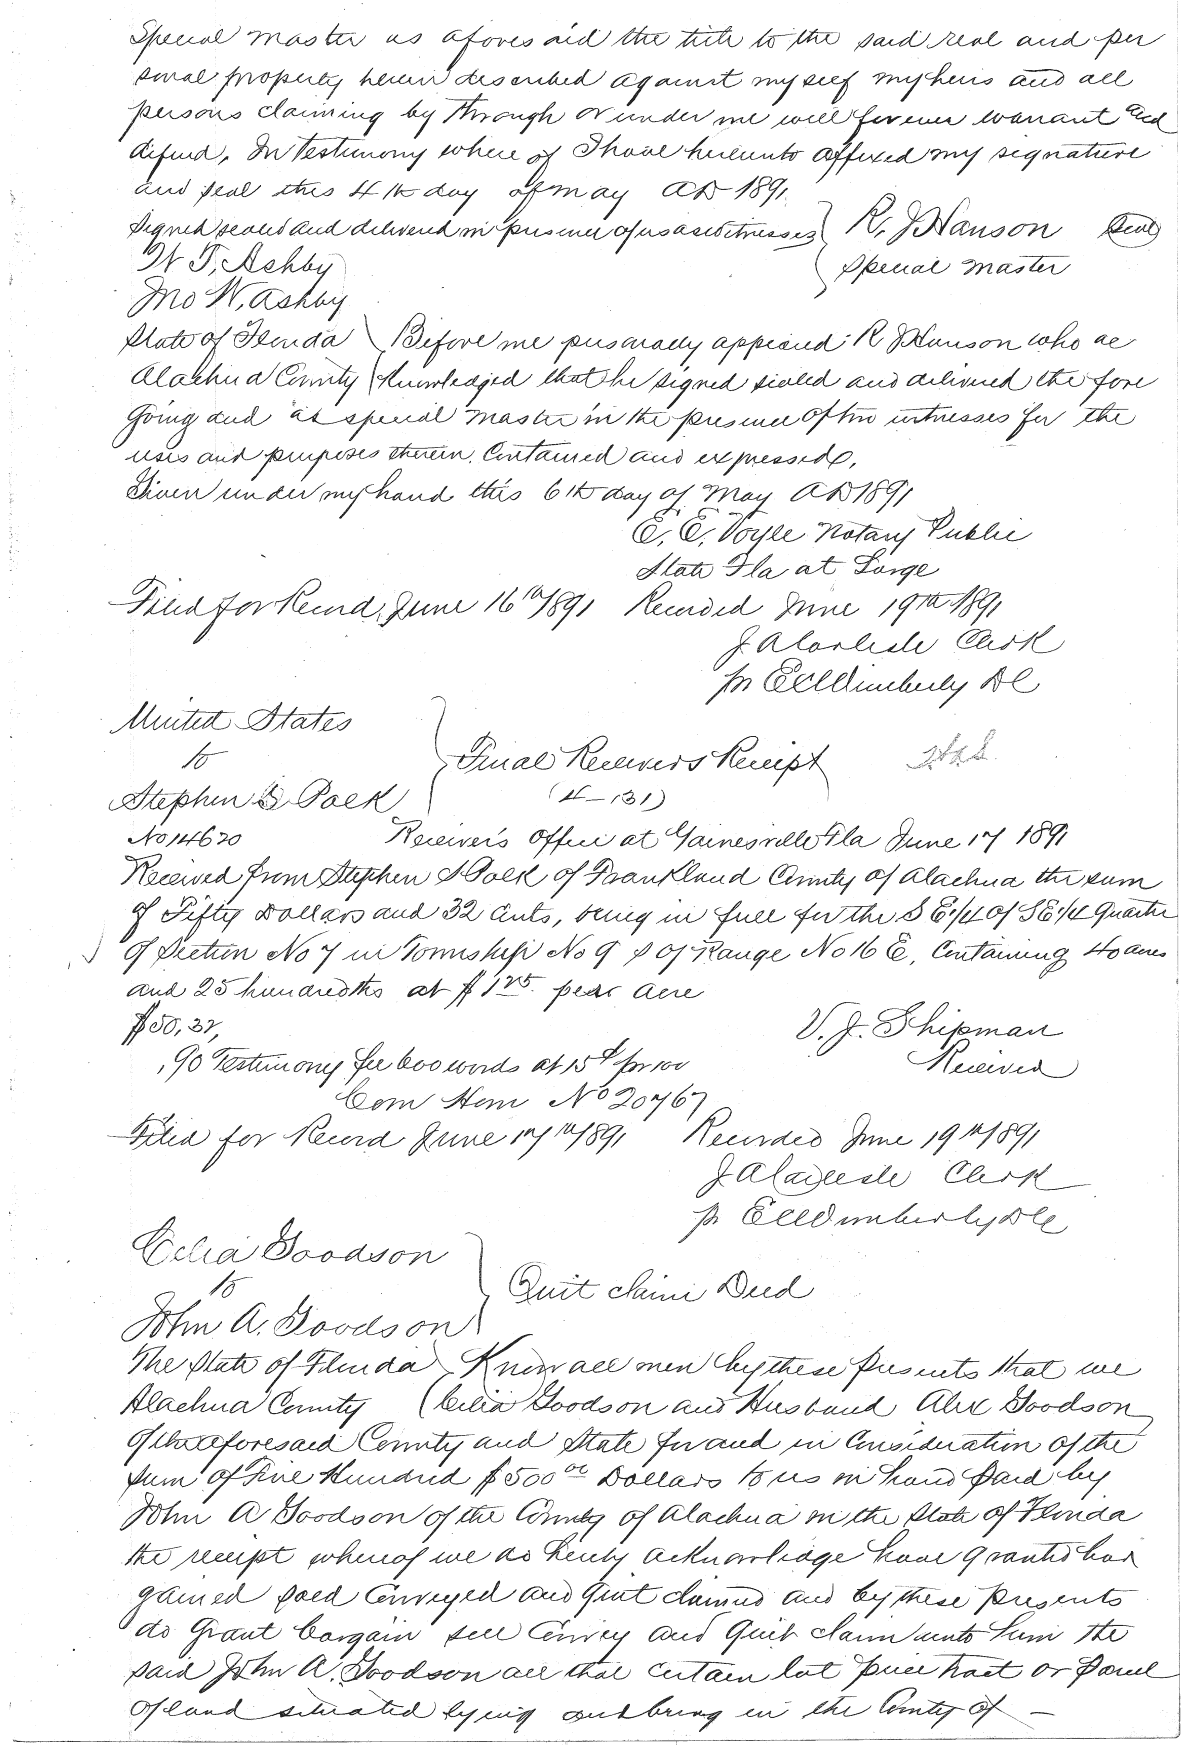 Special master as aforesaid the title to the said real and per
sonal property herein described against myself my heirs and all
persons claiming by through or under me will forever warrant and
defend, In Testimony where of I have hereunto affixed my signature
and seal this 4th day of may AD 1891
Signed sealed and delivered in presence of us as witnesses R. J Hanson Seal
W T, Ashby special master
Jno W, Ashby
State of Florida Before me personally appeared R J Hanson who ac
Alachua County knowledged that he signed sealed and delivered the fore
going deed as special master in the presence of two witnesses for the
uses and purposes therein contained and expressed,
Given under my hand this 6th day of May AD 1891
E. E. Voyle Notary Public
State Fla at Large
Filed for Record, June 16th 1891 Recorded June 19th 1891
J A Carlisle Clerk
pr E C Wimberly DC
United States
to Final Receivers Receipt
Stephen S Polk (4-131)
No 14620 Receiver's Office at Gainesville Fla June 17 1891
Received from Stephen S Polk of Frankland County of Alachua the sum
of Fifty Dollars and 32 cents, being in full for the S E 1/4 of S E 1/4 Quarter
of Section No 7 in Township No 9 S of Range No 16 E, Containing 40 acres
and 25 hundredths at $ 1 25 per acre
$50,32, V. J. Shipman
,90 Testimony fee 600 words at 15¢ pr 100 Receiver
Com Hom No 20767
Filed for Record June 17th 1891 Recorded June 19th 1891
J A Carlisle Clerk
pr E C Wimberly DC
Celia Goodson
to Quit claim Deed
John A. Goodson
The State of Florida Know all men by these presents that we
Alachua County Celia Goodson and Husband Alex Goodson
of the aforesaid County and State for and in Consideration of the
sum of Five Hundred $500 00 Dollars to us in hand paid by
John A Goodson of the County of Alachua in the State of Florida
the receipt whereof we do hereby acknowledge have granted bar
gained sold conveyed and Quit claimed and by these presents
do Grant bargain sell Convey and Quit claim unto him the
said John A. Goodson all that certain lot piece tract or parcel
of land situated lying and being in the County of —